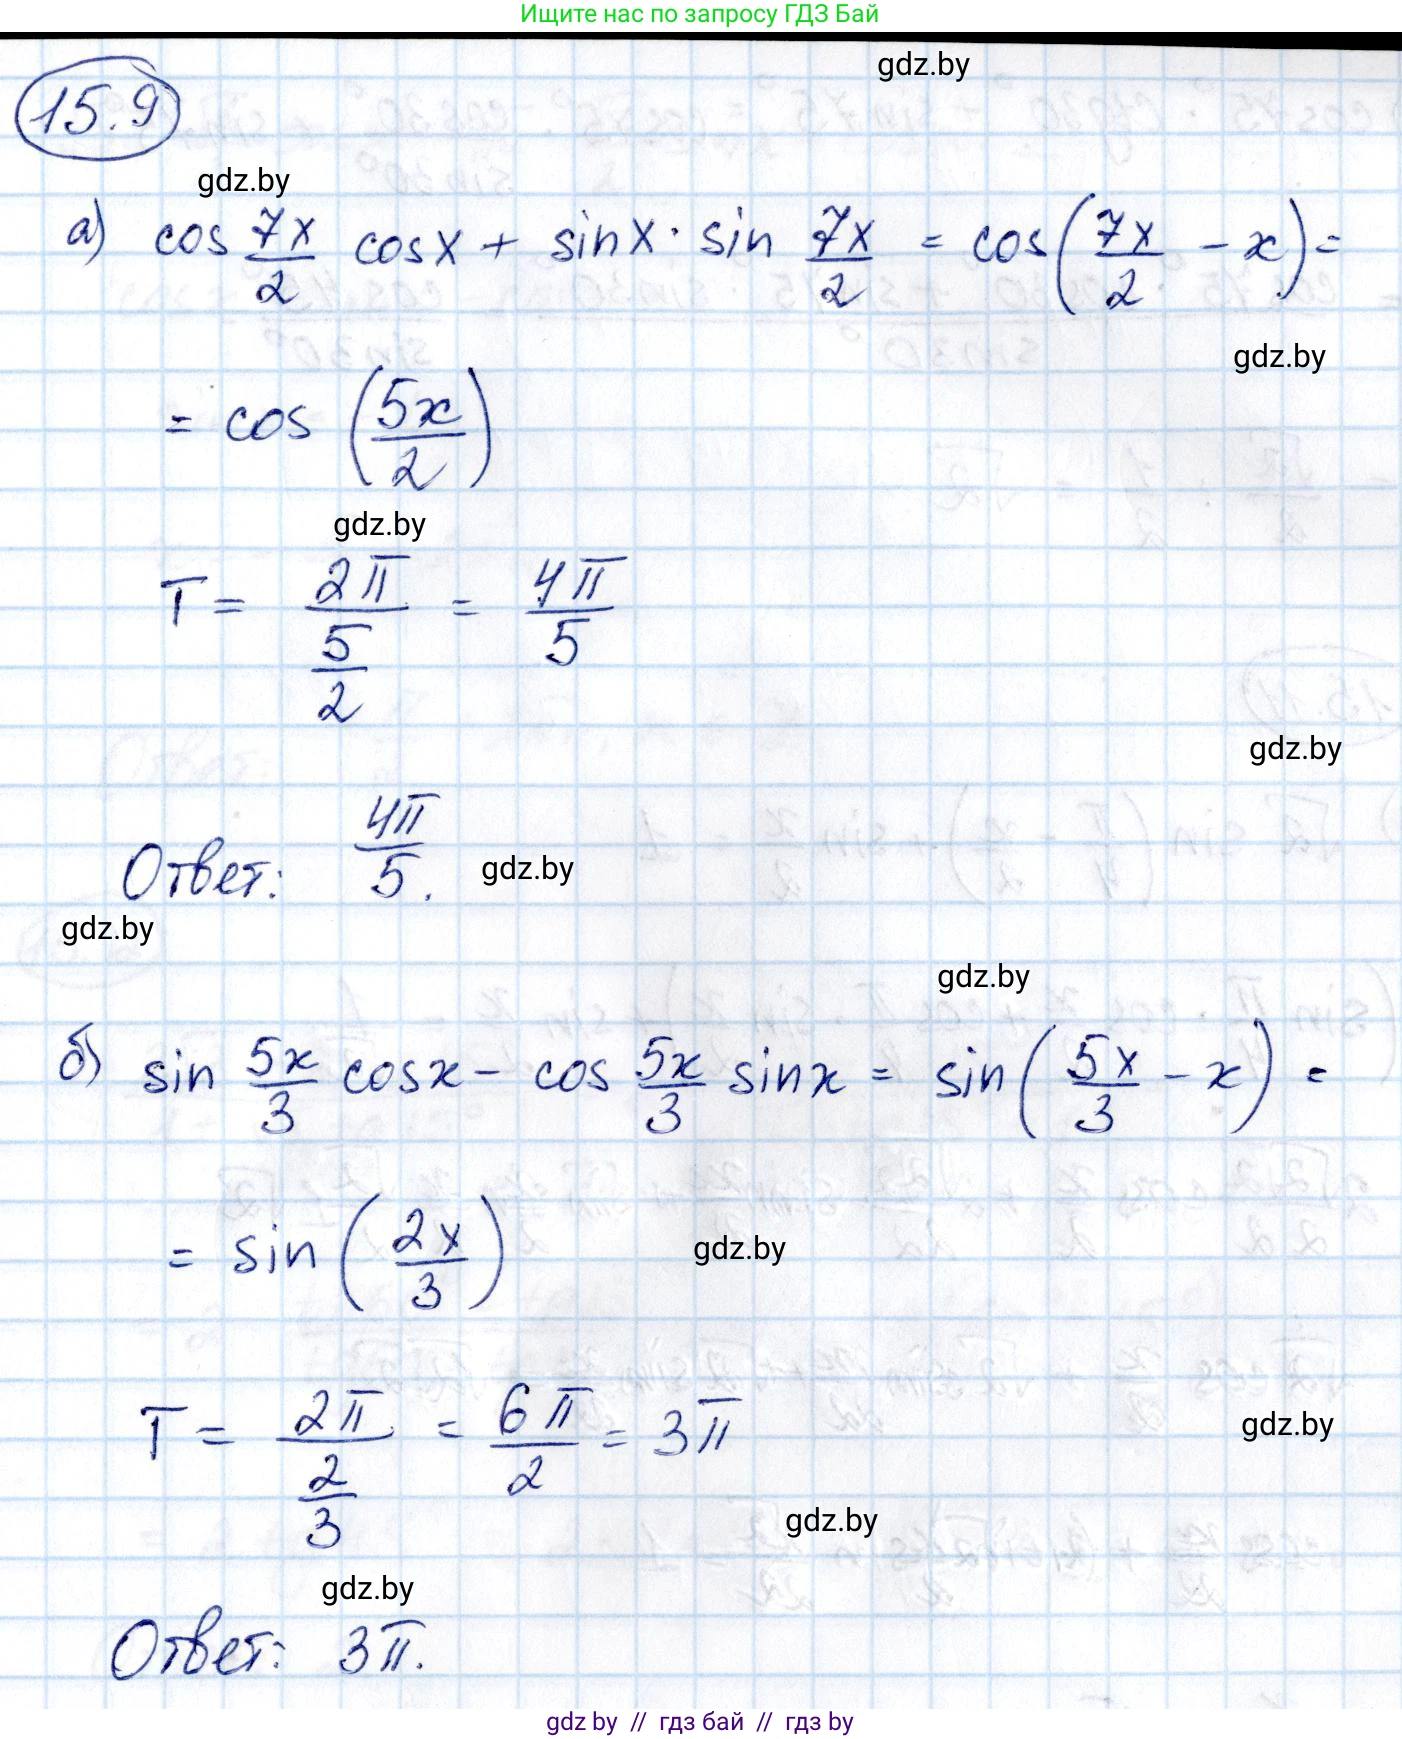 Ищите нас по запросу ГДЗ Бай
gdz.by
15.9
gdz.by
а) cos 7x/2 cosx + sinx · sin 7x/2 = cos(7x/2 - x) =
gdz.by
= cos (5x/2)
gdz.by
T = 2π/(5/2) = 4π/5
gdz.by
Ответ: 4π/5.
gdz.by
gdz.by
gdz.by
б) sin 5x/3 cosx - cos 5x/3 sinx = sin(5x/3 - x) =
= sin (2x/3)
gdz.by
T = 2π/(2/3) = 6π/2 = 3π
gdz.by
gdz.by
gdz.by
Ответ: 3π.
gdz by // гдз бай // гдз by